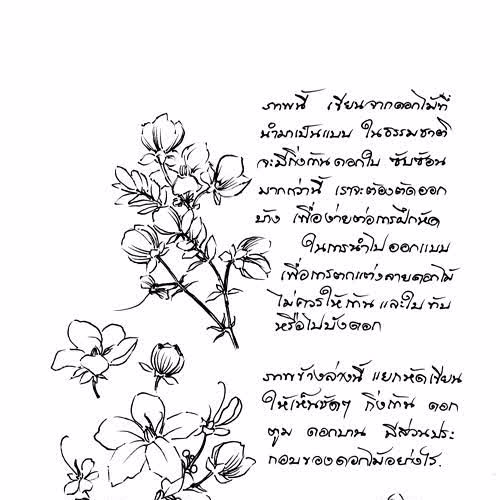 ภาพนี้ เขียนจากดอกไม้ที่
นำมาเป็นแบบ ในธรรมชาติ
จะมีกิ่งก้านดอกใบ ซับซ้อน
มากกว่านี้ เราจะต้องตัดออก
บ้าง เพื่อง่ายต่อการฝึกหัด
ในการนำไปออกแบบ
เพื่อการตกแต่งลายดอกไม้
ไม่ควรให้ก้าน และใบ ทับ
หรือไปบังดอก
ภาพข้างล่างนี้ แยกหัดเขียน
ให้เห็นชัดๆ กิ่งก้าน ดอก
ตูม ดอกบาน มีส่วนประ
กอบของดอกไม้อย่างไร.